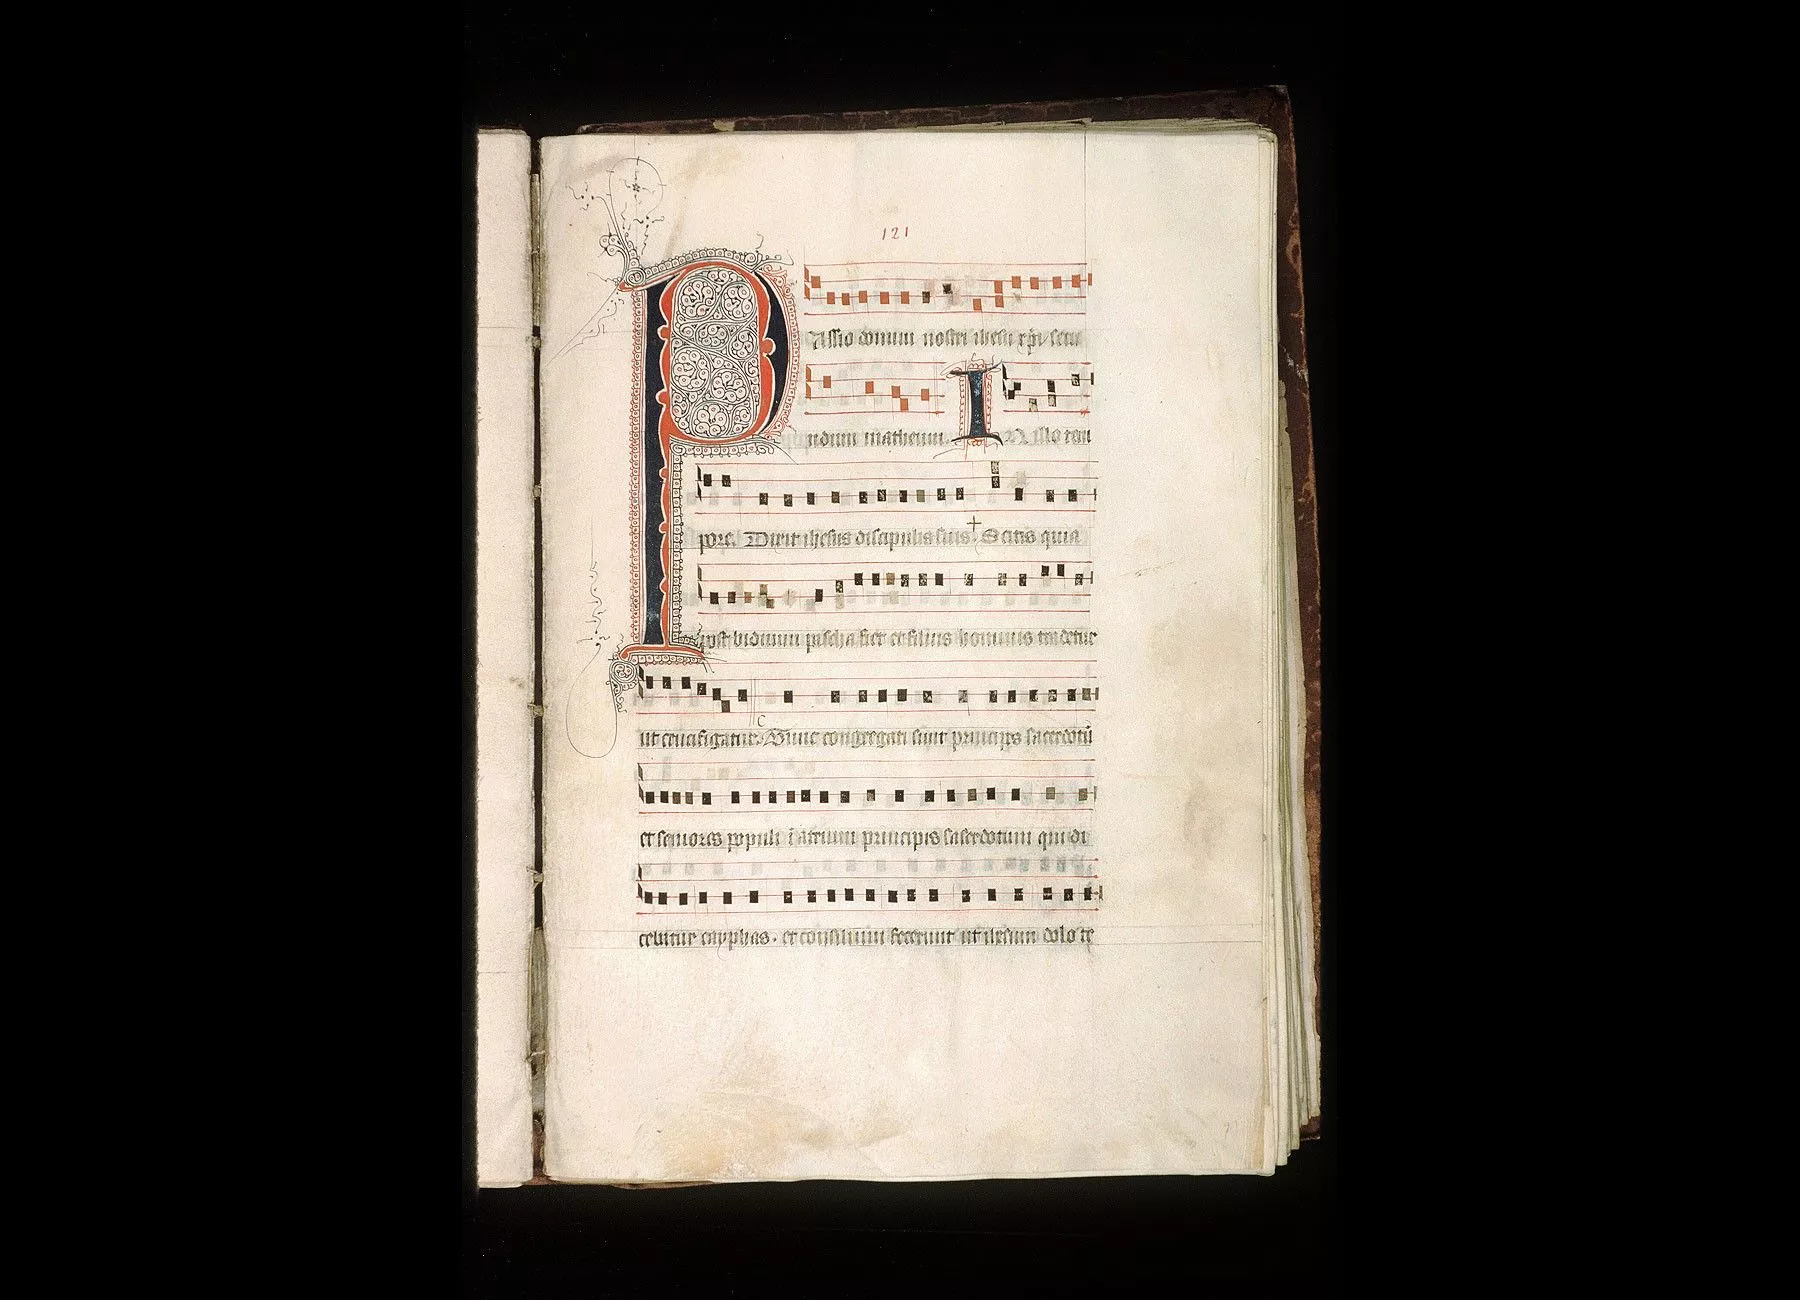 121
PAssio domini nostri ihesu xpi secu
ndum matheum. IN illo tem
pore. Dixit ihesus discipulis suis. + Scitis quia
post biduum pascha fiet et filius hominis tradetur
ut crucifigatur. C Tunc congregati sunt principes sacerdotū
et seniores populi ī atrium principis sacerdotum qui di
cebitur cayphas. et consilium fecerunt ut ihesum dolo te